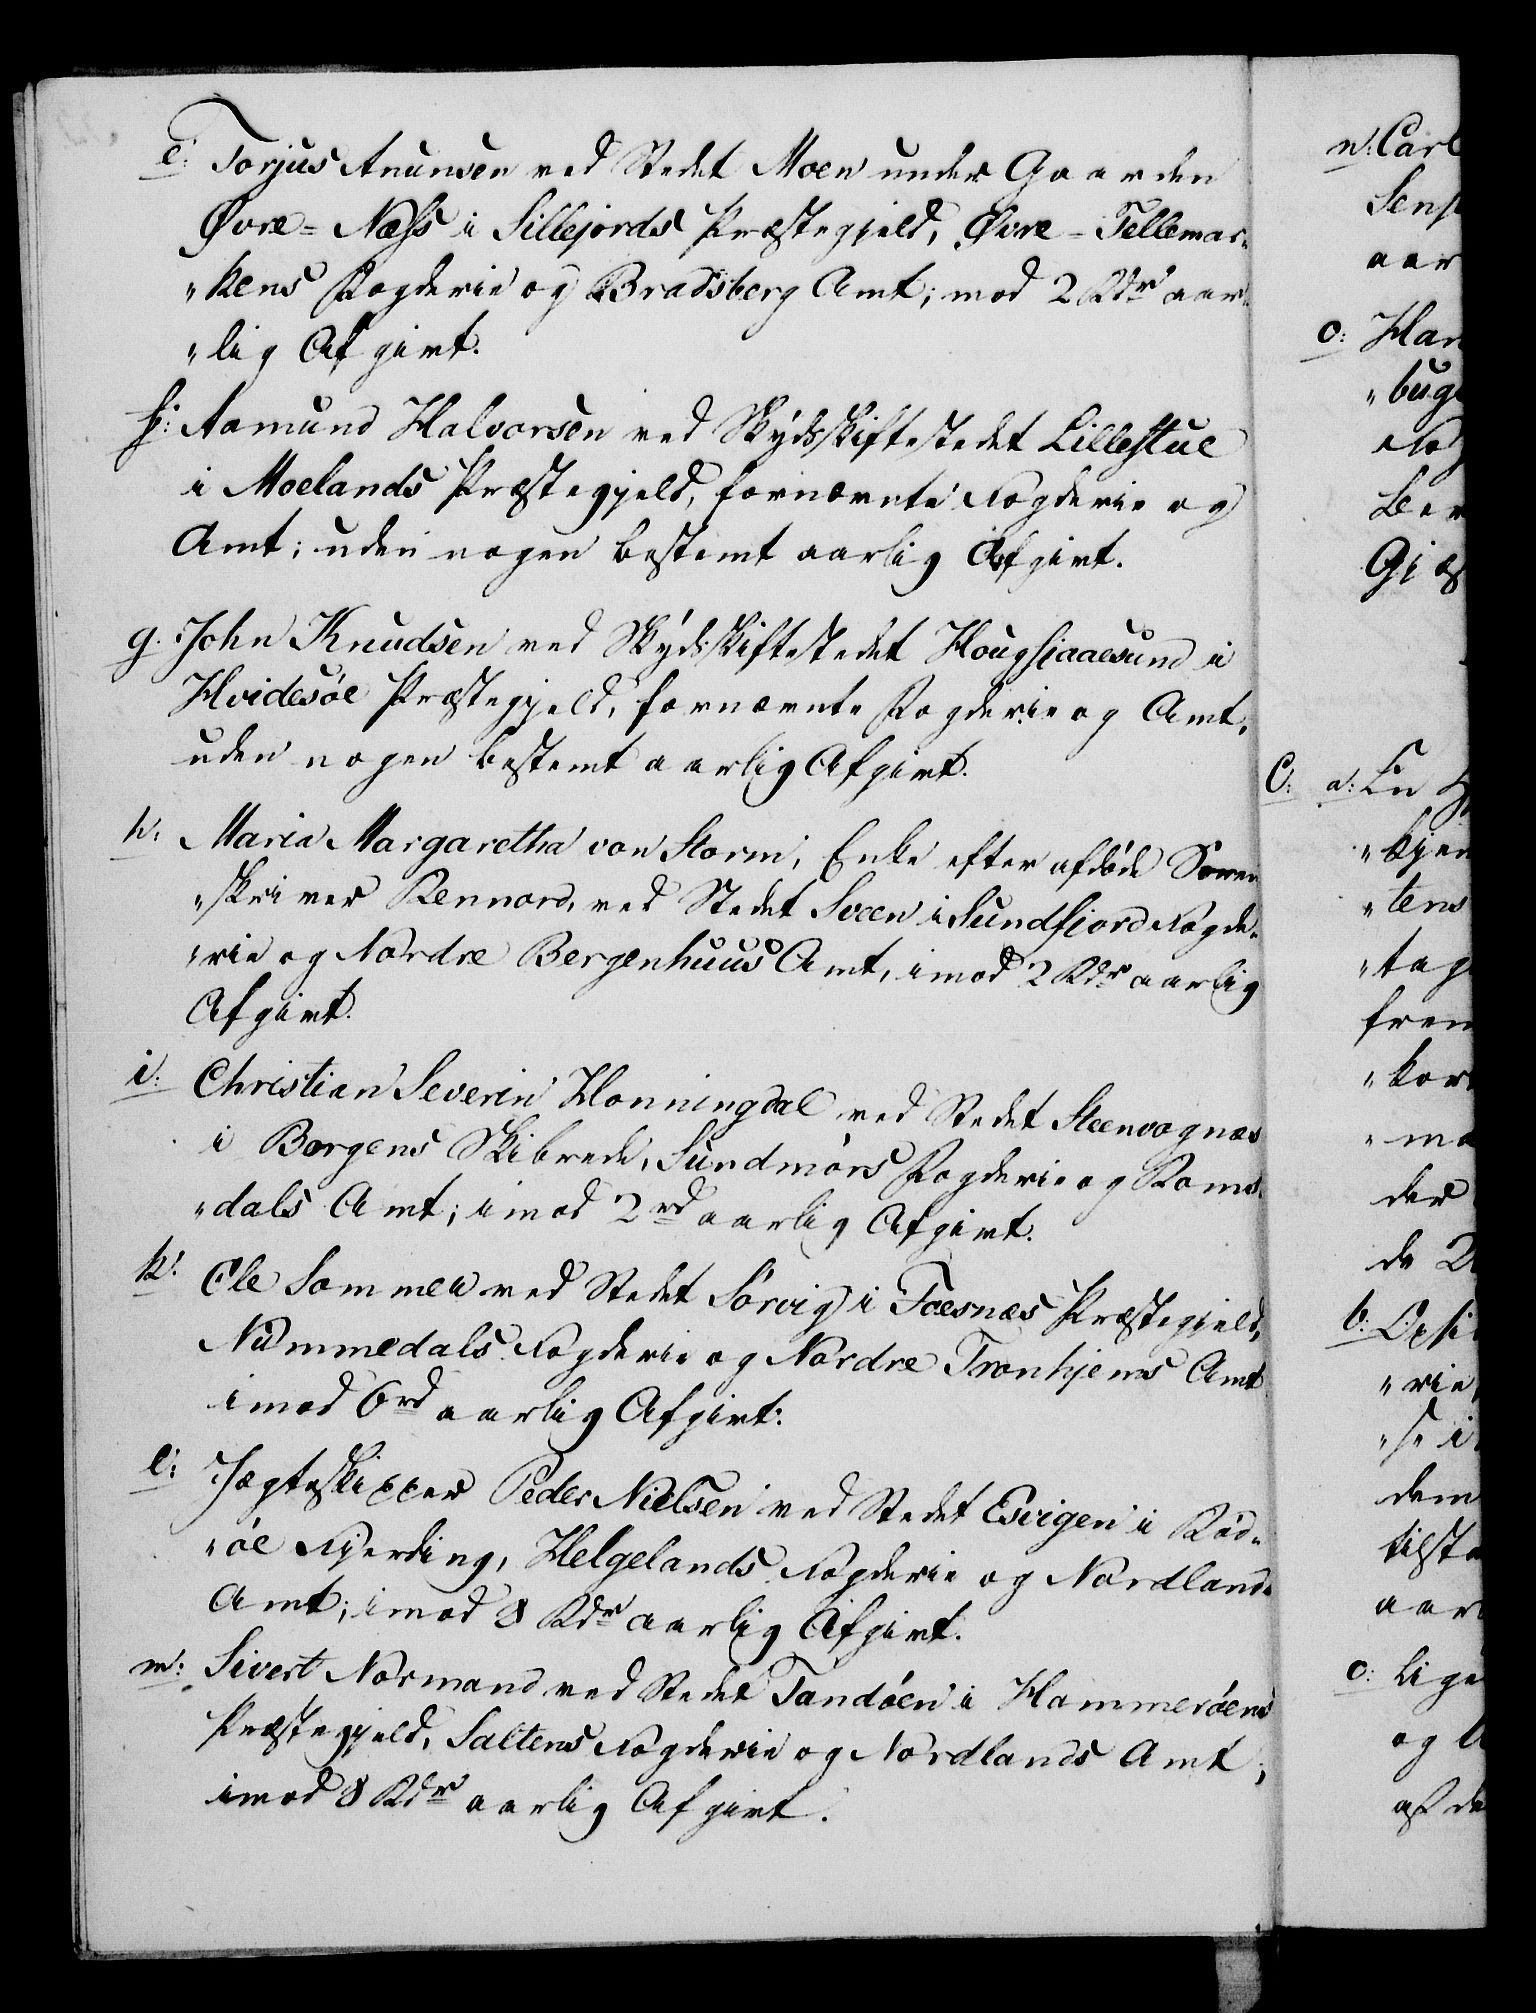 e: Torjus Anunsen ved Stedet Moen under Gaarden
Øvre-Næss i Sillejords Præstegjeld, Øvre-Tellemar-
"kens Fogderie og Bradsberg Amt; mod 2 Rdr aar-
"lig Afgivt.
f: Aamund Halvorsen ved Skydsskiftestedet Lillestue
i Moelands Præstegjeld, fornævnte Fogderie og
Amt; uden nogen bestemt aarlig Afgivt.
g. John Knudsen ved Skydsskiftestedet Hougsiaaesund i
Hvidesøe Præstegjeld, fornævnte Fogderie og Amt,
uden nogen bestemt aarlig Afgivt.
h: Maria Margaretha von Storm, Enke efter afdøde Soren
"skriver Rennord, ved Stedet Sveen i Sundfjord Fogde-
"rie og Nordre Bergenhuus Amt, imod 2 Rdr aarlig
Afgivt.
i: Christian Severin Honningdal ved Stedet Steenvognæs
i Borgens Skibrede, Sundmørs Fogderie og Roms-
"dals Amt; imod 2rd aarlig Afgivt.
k. Ole Sommer ved Stedet Sørvig i Foesnæs Præstegjeld,
Nummedals Fogderie og Nordre Tronhjems Amt
imod 6rd aarlig Afgivt.
l: Jægteskipper Peder Nielsen ved Stedet Esvigen i Rød-
"øe Fjerding, Helgelands Fogderie og Nordlands
Amt; imod 8 Rdr aarlig Afgivt.
m: Sivert Normand ved Stedet Tandøen i Hammerøens
Præstegjeld, Saltens Fogderie og Nordlands Amt;
imod 8 Rdr aarlig Afgivt.
n: Carl
aar
o: Han
"buge
Ber
Gjæs
C: a: En
"kjen
"tens
"tag
frem
"kor
"ma
der
de
b:
"rie
dem
tilsta
aar
c: lige
og
af de